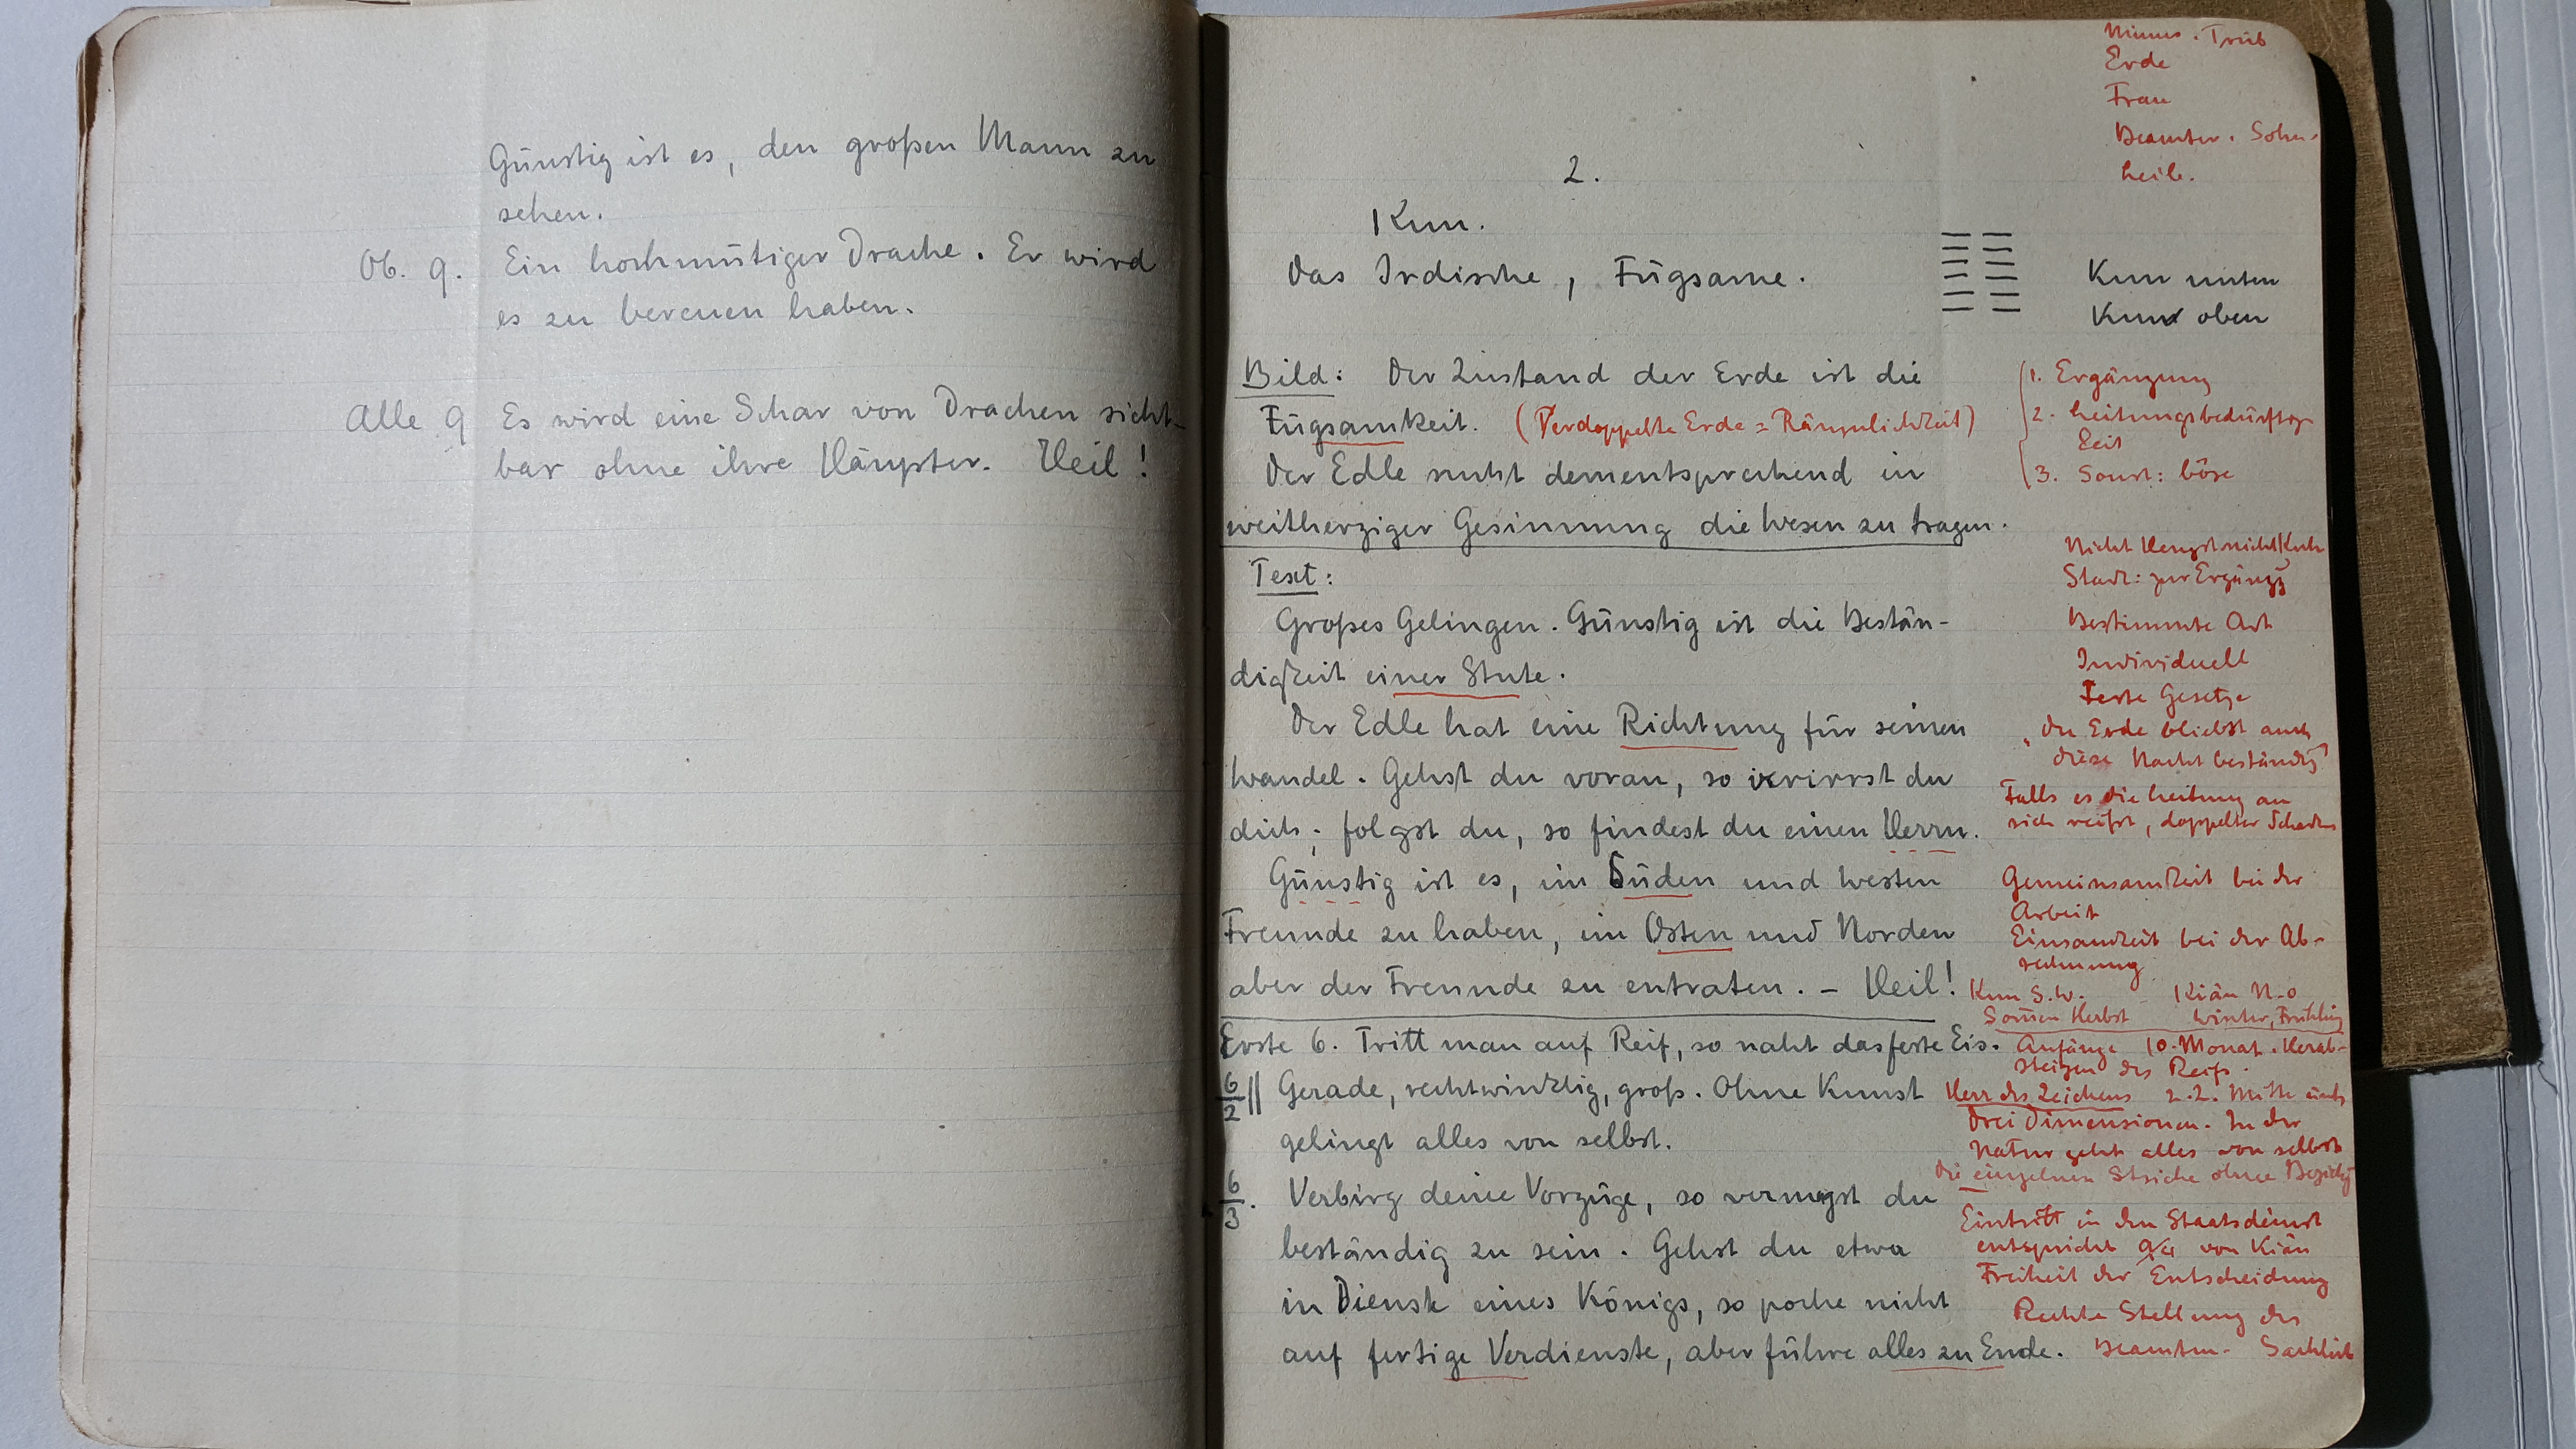 Günstig ist es, den großen Mann zu
sehen.
Ob. 9. Ein hochmütiger Drache. Er wird
es zu bereuen haben.
Alle 9 Es wird eine Schar von Drachen sicht-
bar ohne ihre Häupter. Heil!
Minus. Trüb
Erde
Frau
Beamter. Sohn.
2.
Kun.
Das Irdische, Fügsame.
Kun unten
Kun oben
Bild: Der Zustand der Erde ist die
Fügsamkeit. (Verdoppelte Erde = Räumlichkeit)
Der Edle sucht dementsprechend in
weitherziger Gesinnung die Wesen zu tragen.
1. Ergänzung
2. Leitungsbedürftig
keit
3. Sonst: böse
Text:
Großes Gelingen. Günstig ist die Bestän-
digkeit einer Stute.
Der Edle hat eine Richtung für seinen
Wandel. Gehst du voran, so verirrst du
dich; folgst du, so findest du einen Herrn.
Günstig ist es, im Süden und Westen
Freunde zu haben, im Osten und Norden
aber der Freunde zu entraten. – Heil!
Nicht Hengst nicht Kuh
Bestimmte Art
Individuell
Feste Gesetze
"Die Erde bleibt auch
diese Nacht beständig"
Falls es die Leitung an
sich reißt, doppelter Schaden
Gemeinsamkeit bei der
Arbeit
Einsamkeit bei der Ab-
rechnung
Kun S.W. – Kiän N-O
Sommer Herbst Winter, Frühling
Erste 6. Tritt man auf Reif, so naht das feste Eis.
6/2 || Gerade, rechtwinklig, groß. Ohne Kunst
gelingt alles von selbst.
6/3. Verbirg deine Vorzüge, so vermagst du
beständig zu sein. Gehst du etwa
in Dienste eines Königs, so poche nicht
auf fertige Verdienste, aber führe alles zu Ende.
Anfänge 10. Monat. Herab-
steigen des Reifs.
Herr des Zeichens 2.2. Mitte
Drei Dimensionen. In der
Natur geht alles von selbst
Die einzelnen Striche ohne
Eintritt in den Staatsdienst
entspricht 9/4 von Kiän
Freiheit der Entscheidung
Rechte Stellung des
Beamten. Sachlich